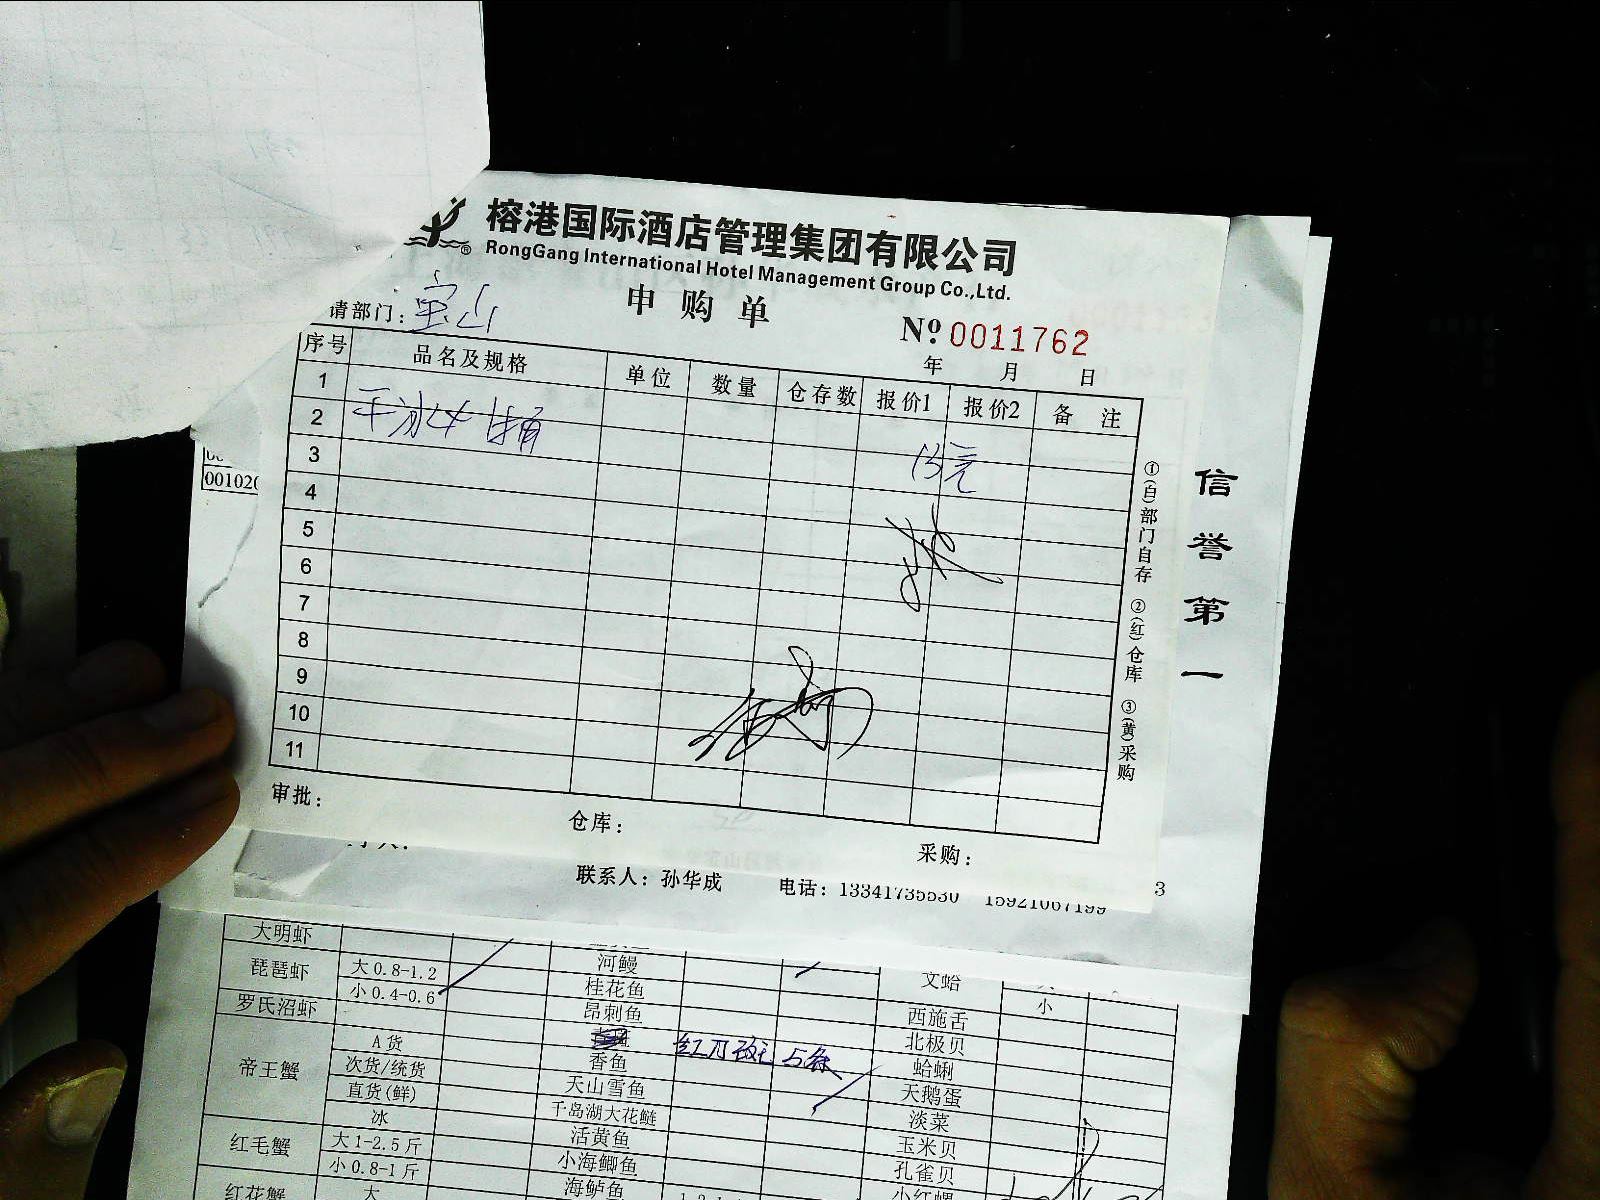 榕港国际酒店管理集团有限公司
RongGang International Hotel Management Group Co.,Ltd.
申购单
请部门：宝山
№ 0011762
年 月 日
序号 品名及规格 单位 数量 仓存数 报价1 报价2 备注
1
2 干冰4桶
3 15元
4
5
6
7
8
9
10
11
①(白)部门自存 ②(红)仓库 ③(黄)采购
审批：
仓库：
采购：
信誉第一
00102
联系人：孙华成 电话：13341735530 15921067199
3
大明虾
琵琶虾 大0.8-1.2 河鳗 文蛤
小0.4-0.6 桂花鱼 小
罗氏沼虾 昂刺鱼 西施舌
帝王蟹 A货 红刀斑 5条 北极贝
次货/统货 香鱼 蛤蜊
直货(鲜) 天山雪鱼 天鹅蛋
冰 千岛湖大花鲢 淡菜
红毛蟹 大1-2.5斤 活黄鱼 玉米贝
小0.8-1斤 小海鲫鱼 孔雀贝
红花蟹 大 海鲈鱼 小红螺